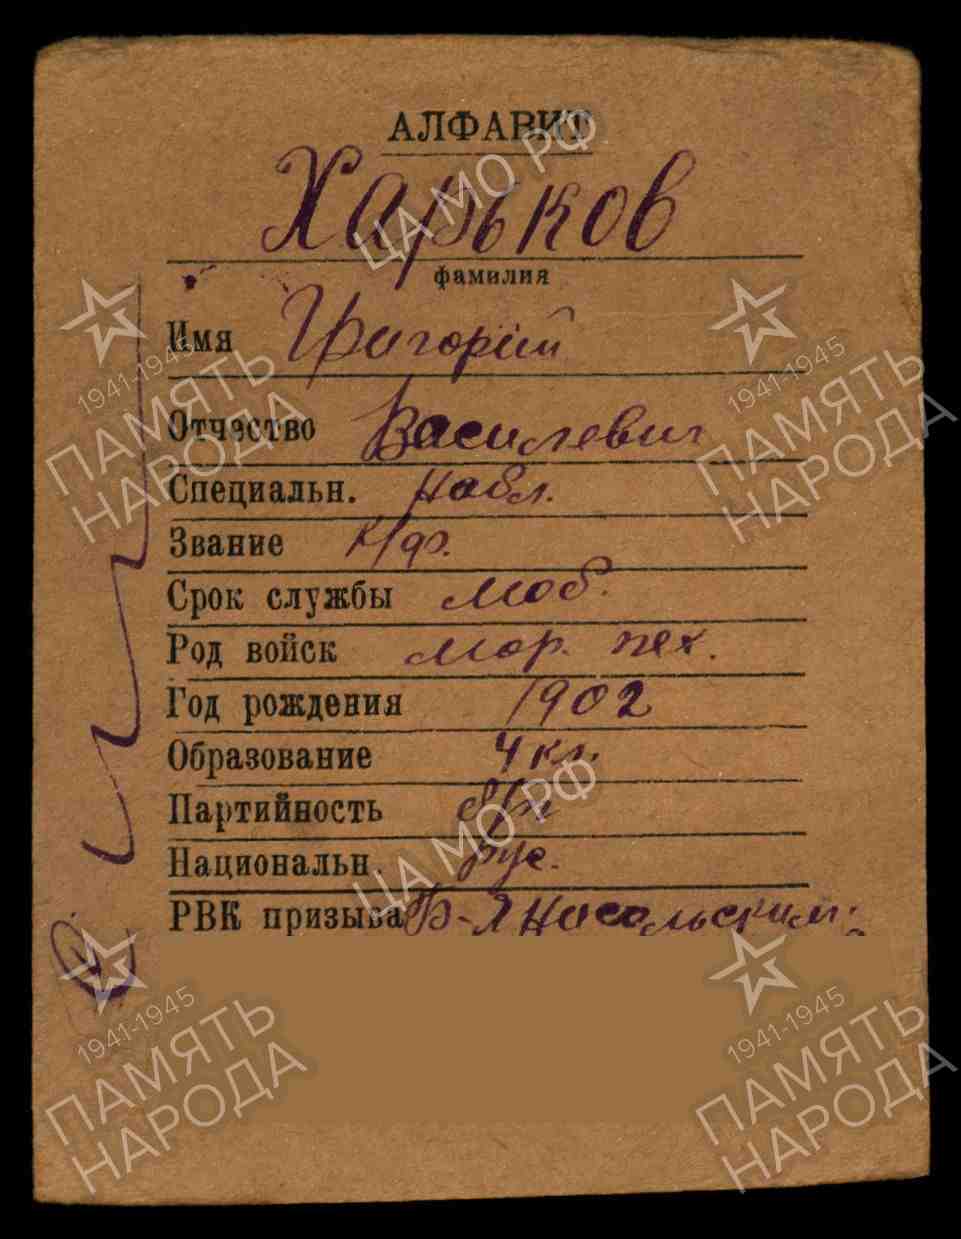 АЛФАВИТ
Харьков
фамилия
Имя Григорий
Отчество Василевич
Специальн. Набл.
Звание К/ф.
Срок службы моб.
Род войск мор. пех.
Год рождения 1902
Образование 4 кл.
Партийность б/п
Национальн. рус.
РВК призыва
ЦА МО РФ
1941-1945
ПАМЯТЬ
НАРОДА
1941-1945
ПАМЯТЬ
НАРОДА
ЦА МО РФ
1941-1945
ПАМЯТЬ
НАРОДА
1941-1945
ПАМЯТЬ
НАРОДА